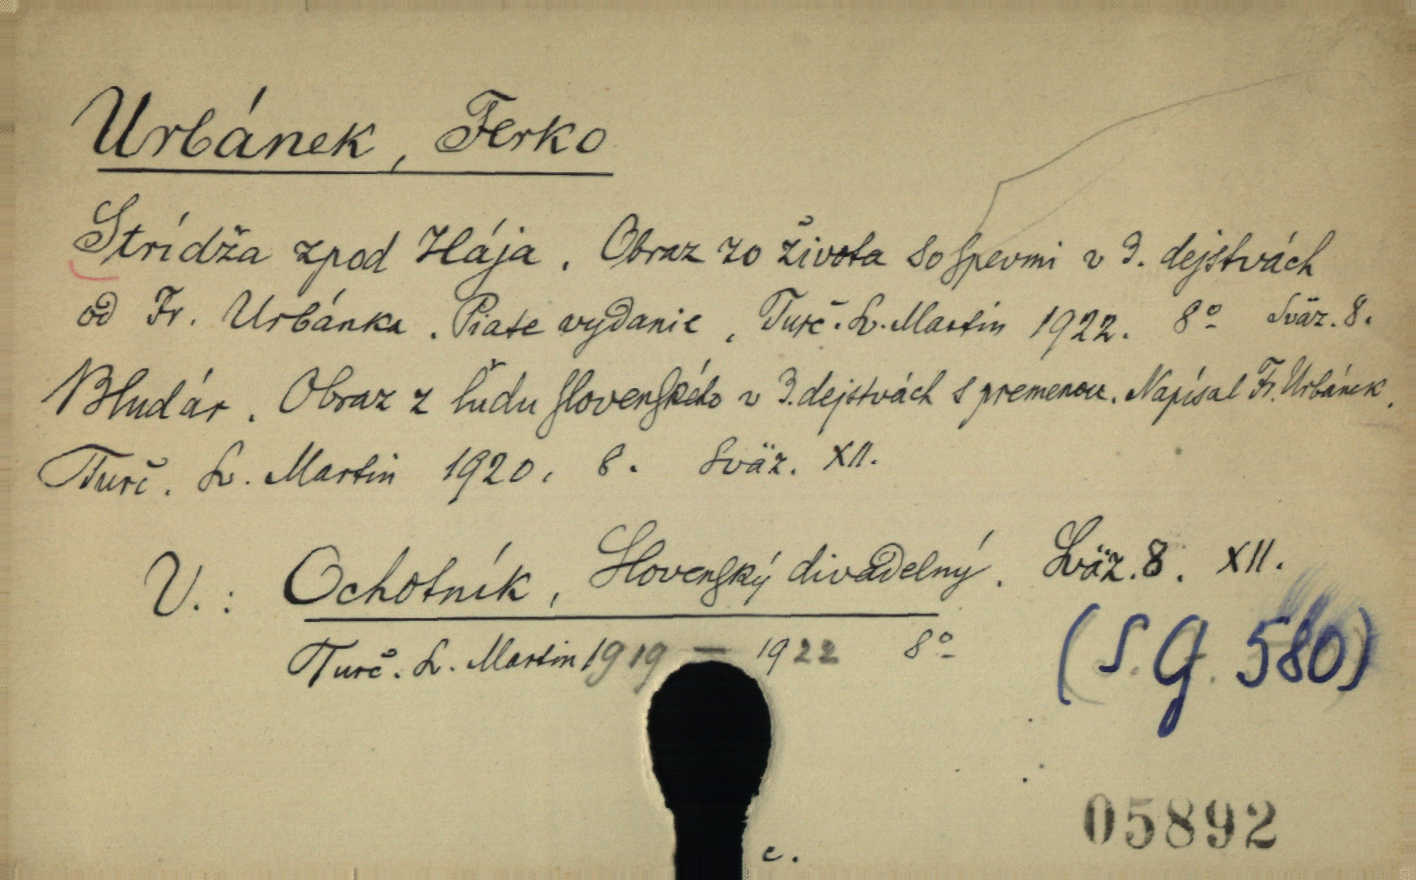 Urbánek, Ferko
Strídža zpod Hája. Obraz zo života so spevmi v 3. dejstvách
od Fr. Urbánka. Piate vydanie, Turč. Sv. Martin 1922. 8° Sväz. 8.
Bludár. Obraz z ľudu slovenského v 3. dejstvách s premenou. Napísal Fr. Urbánek.
Turč. Sv. Martin 1920. 8. Sväz. XII.
V.: Ochotník, Slovenský divadelný. Sväz. 8. XII.
Turč. Sv. Martin 1919 — 1922 8°
(S. G. 580)
05892
c.